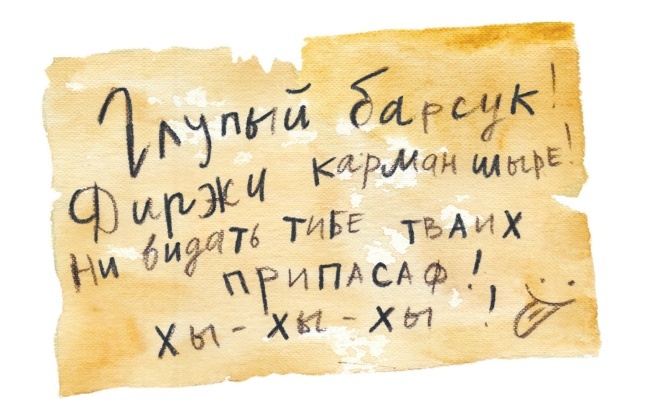 Глупый барсук!
Фиржи карман шыре!
Ни видать тибе тваих
припасаф!
Хы-хы-хы!